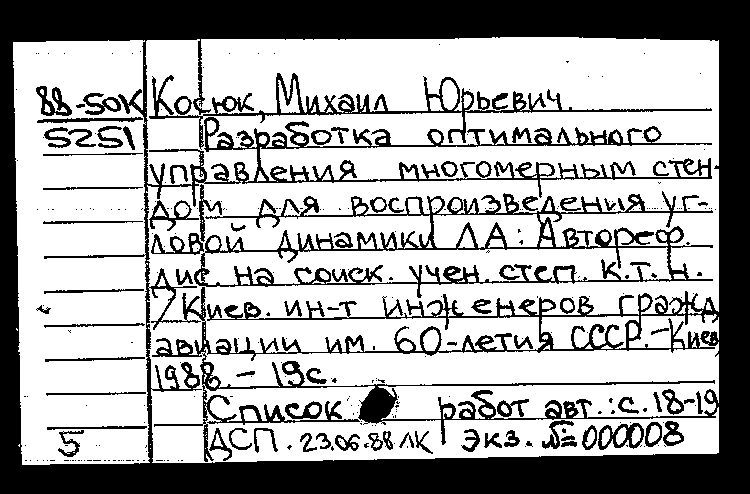 88-50К Косюк, Михаил Юрьевич.
5251 Разработка оптимального
управления многомерным стен-
дом для воспроизведения уг-
ловой динамики ЛА: Автореф.
дис. на соиск. учен. степ. к.т.н.
/Киев. ин-т инженеров гражд.
авиации им. 60-летия СССР. – Киев,
1988. – 19с.
Список работ авт.: с. 18-19
5 ДСП. 23.06.88 ЛК Экз. № 000008